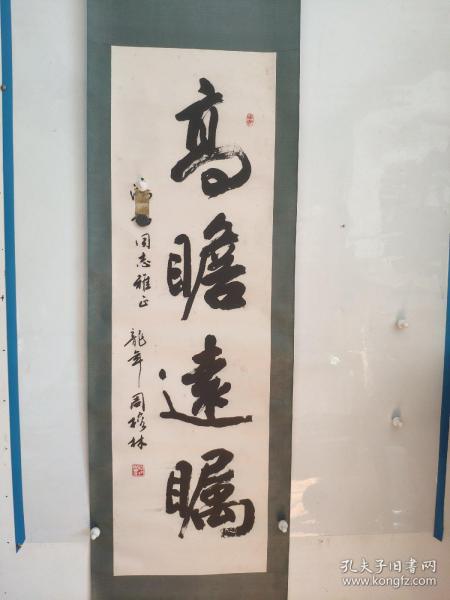 高瞻遠瞩
同志雅正
龍年周
林
孔夫子旧书网
www.kongfz.com